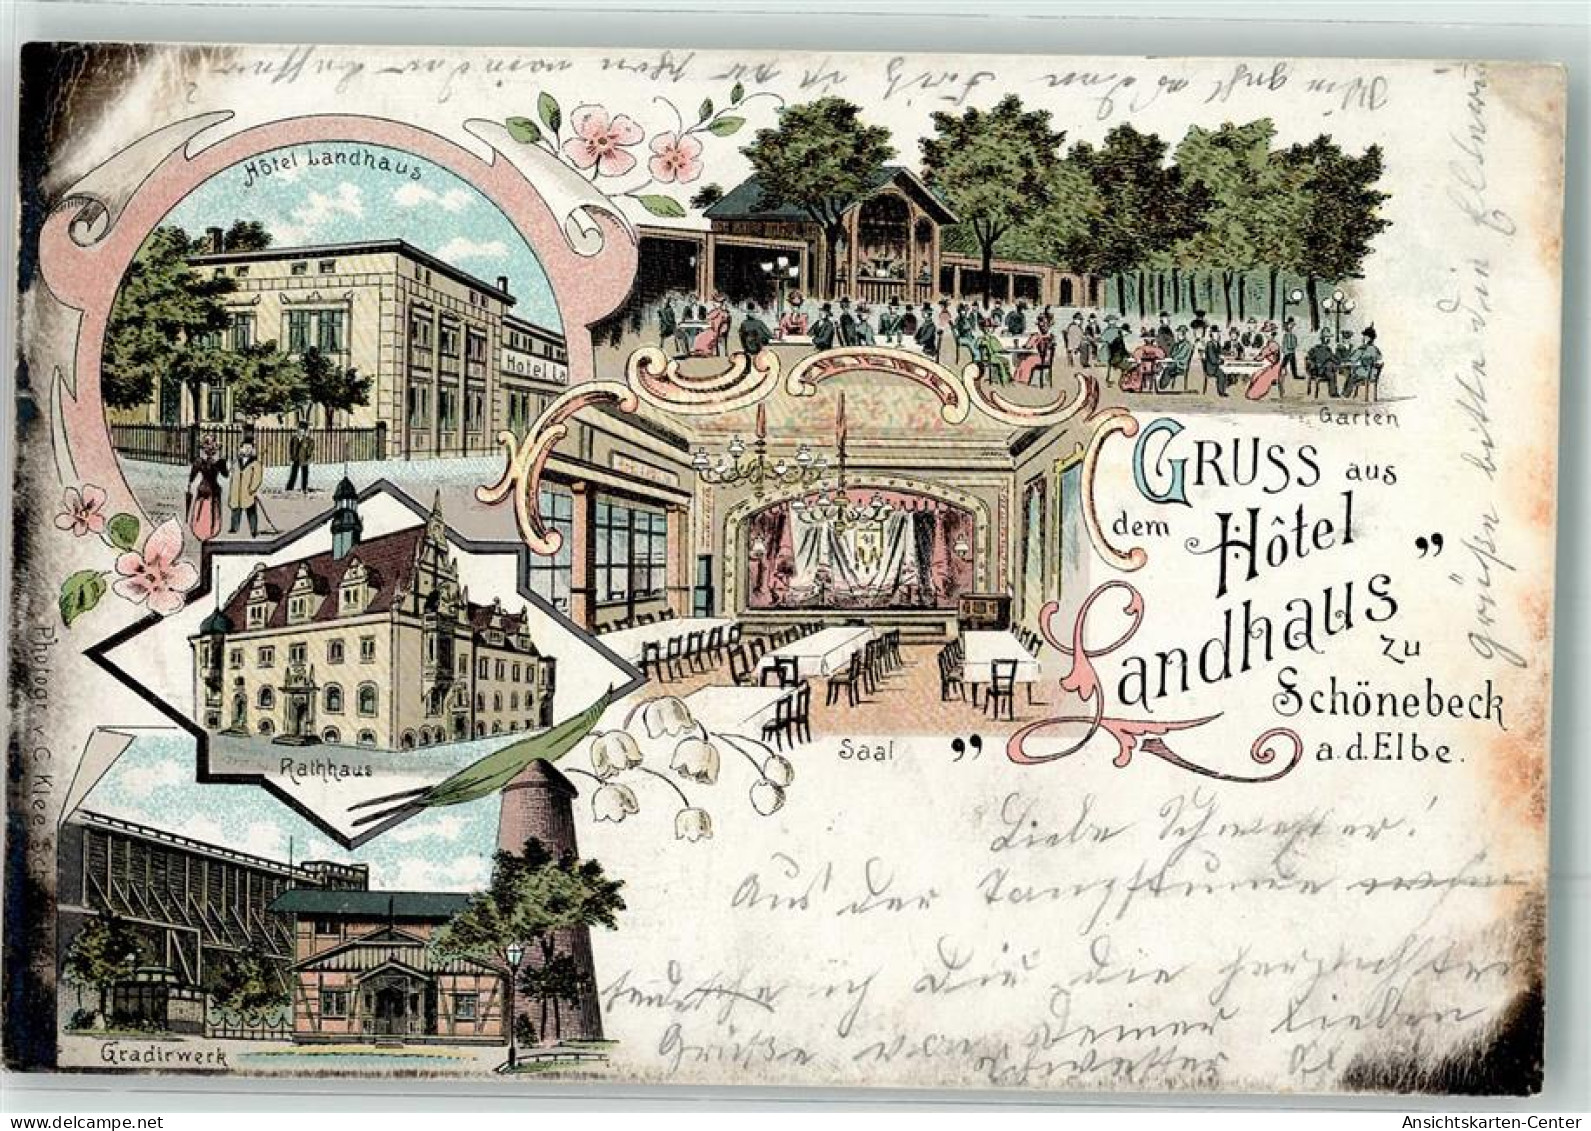 Hôtel Landhaus
Hotel La
Garten
GRUSS aus
dem Hôtel
„Landhaus”
zu
Schönebeck
a.d.Elbe.
Saal
Rathhaus
Gradirwerk
Photogr. v. C. Klee
Liebe Schwester!
Aus der Tanzstunde
sende ich Dir die herzlichsten
Grüße von Deiner lieben
Schwester
grüßen bitte
AnsichtsKarten-Center